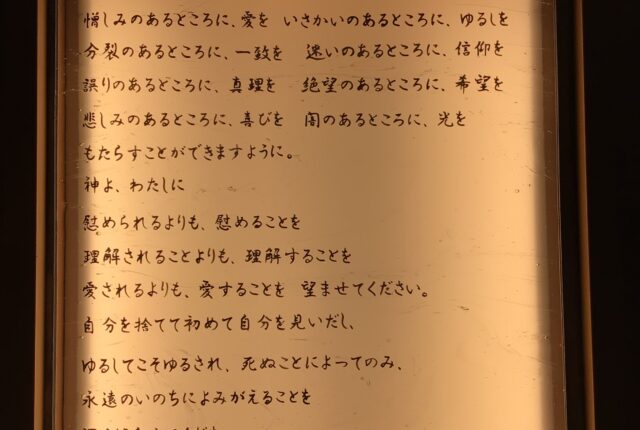 憎しみのあるところに、愛を いさかいのあるところに、ゆるしを
分裂のあるところに、一致を 迷いのあるところに、信仰を
誤りのあるところに、真理を 絶望のあるところに、希望を
悲しみのあるところに、喜びを 闇のあるところに、光を
もたらすことができますように。
神よ、わたしに
慰められるよりも、慰めることを
理解されることよりも、理解することを
愛されるよりも、愛することを 望ませてください。
自分を捨てて初めて自分を見いだし、
ゆるしてこそゆるされ、死ぬことによってのみ、
永遠のいのちによみがえることを